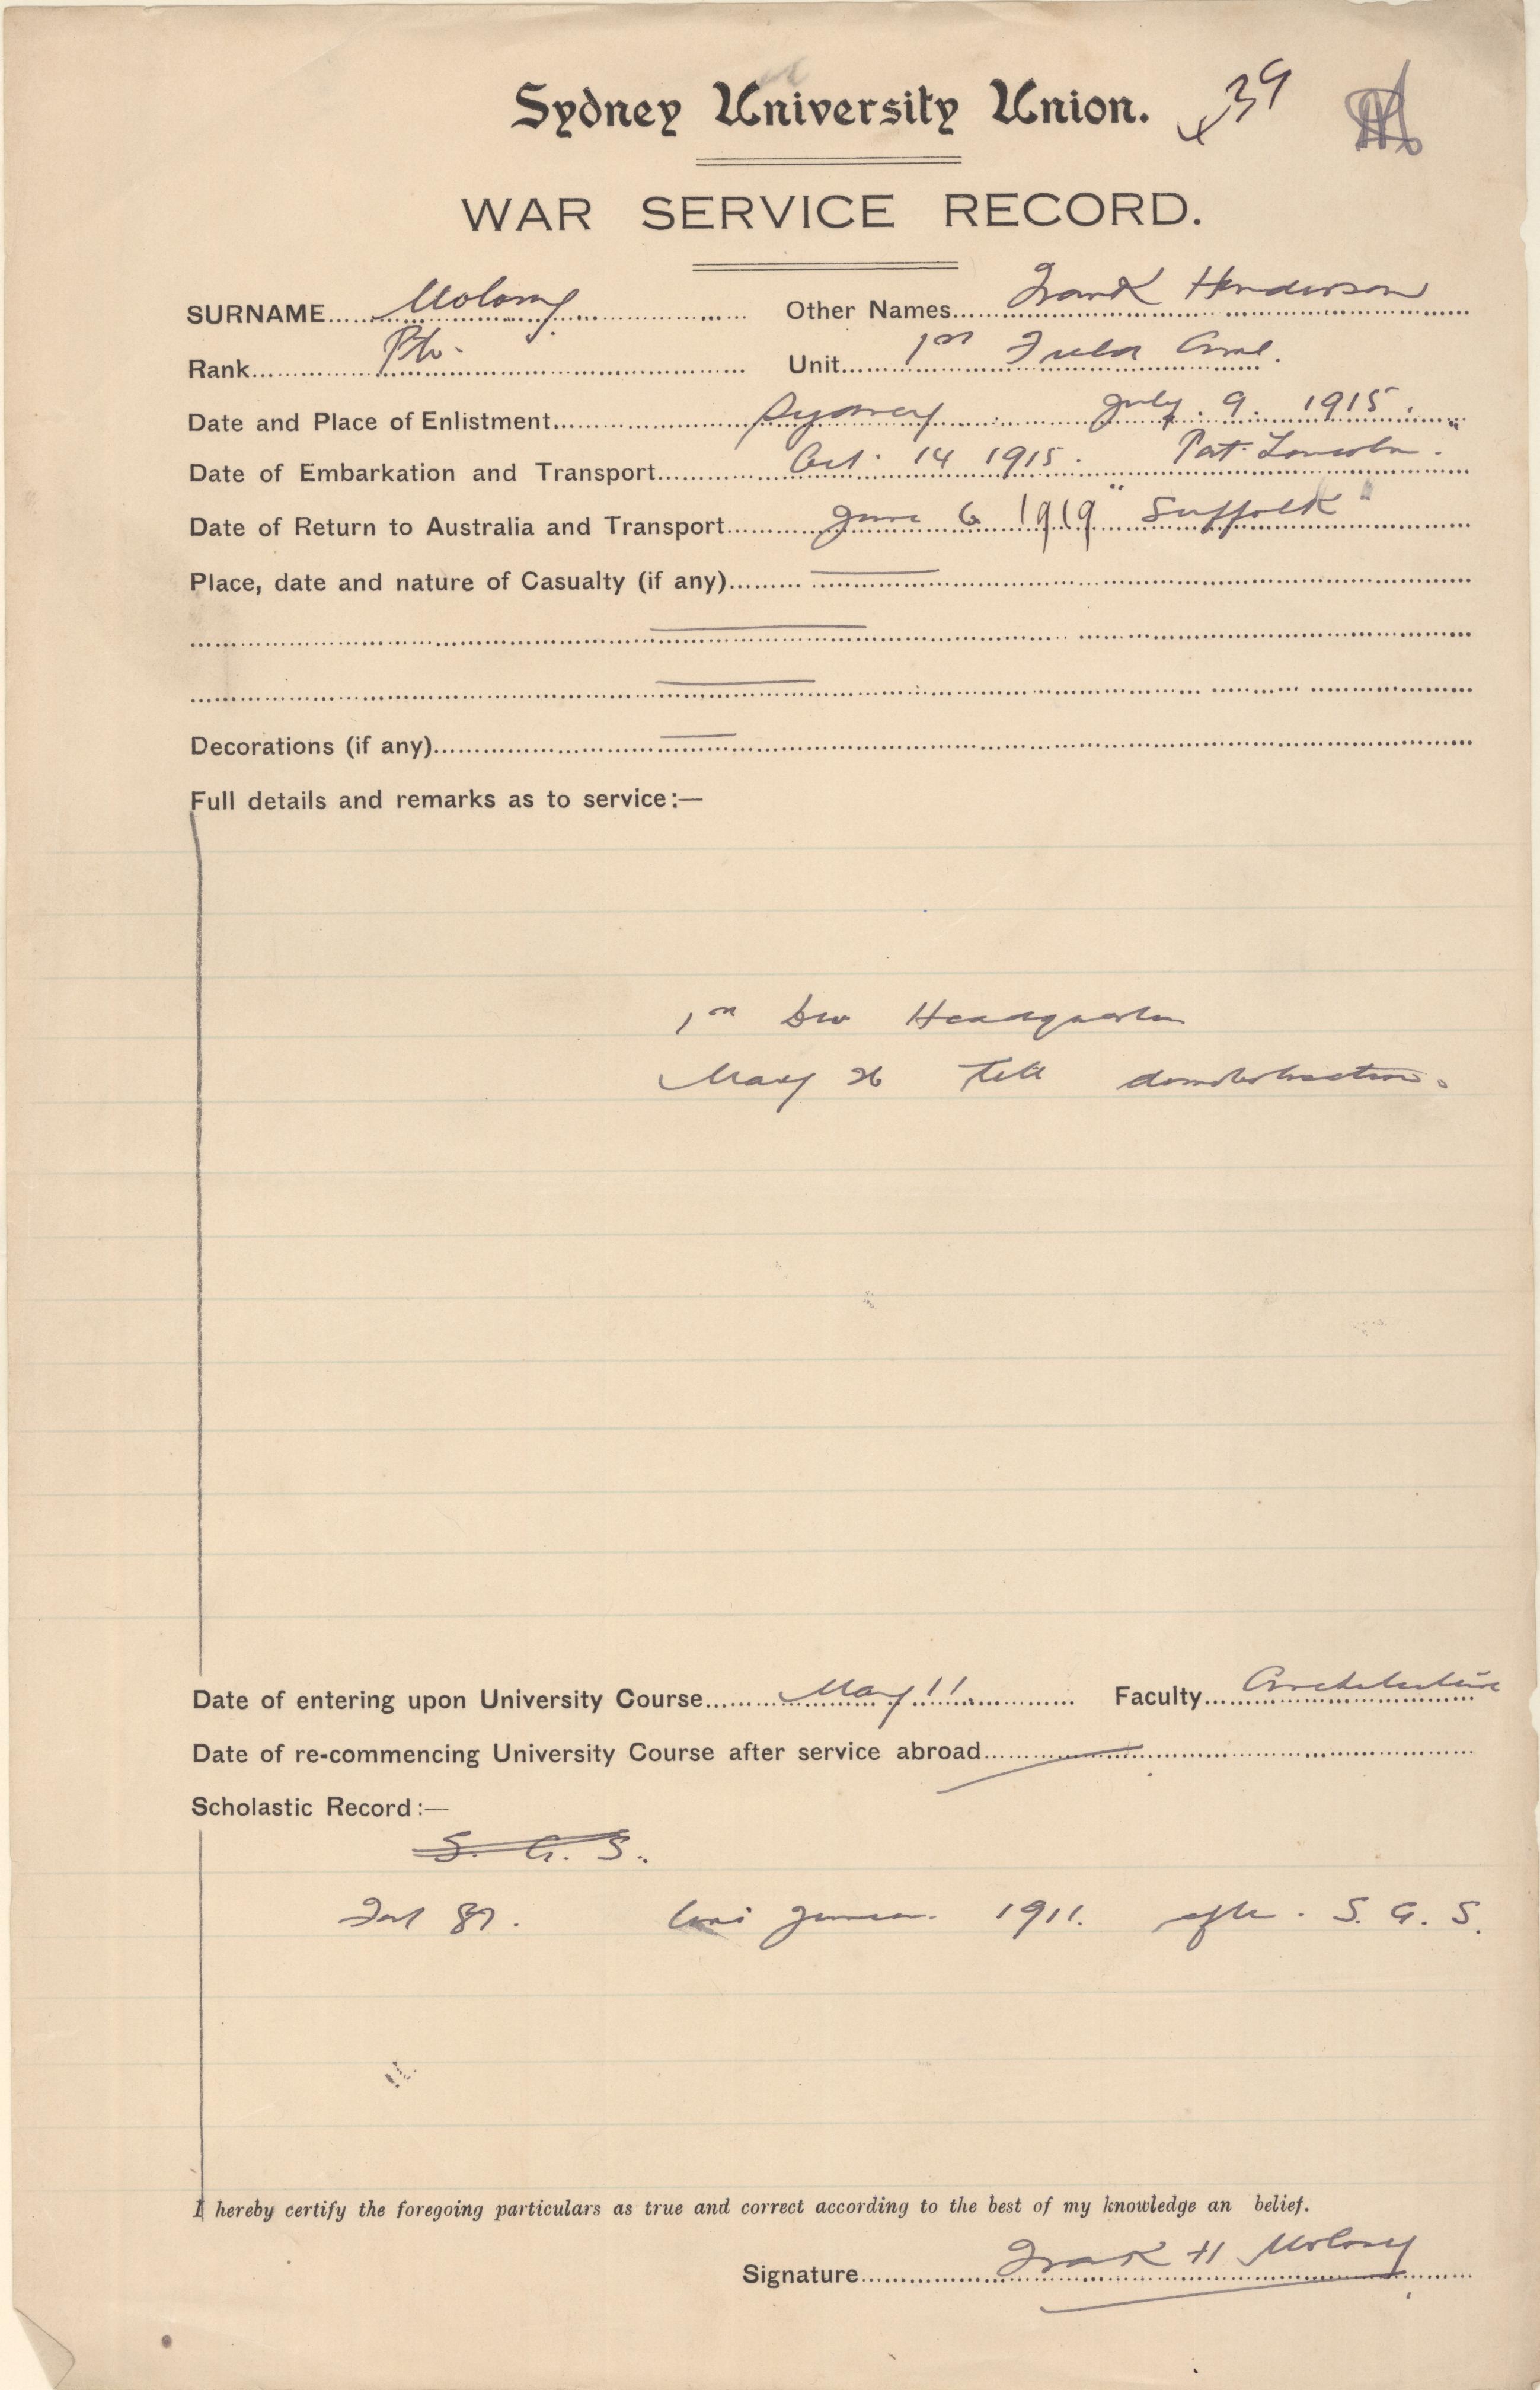 Sydney University Union. 39
WAR SERVICE RECORD.
SURNAME Molony Other Names Frank Henderson
Rank Pte. Unit 1st Field Amb.
Date and Place of Enlistment Sydney July. 9. 1915.
Date of Embarkation and Transport Oct. 14 1915. Port Lincoln.
Date of Return to Australia and Transport June 6 1919 "Suffolk"
Place, date and nature of Casualty (if any)
Decorations (if any)
Full details and remarks as to service:—
1st Div Headquarters
May 26 till demobilisation.
Date of entering upon University Course May 11 Faculty Architecture
Date of re-commencing University Course after service abroad
Scholastic Record:—
S. G. S.
1911. S. G. S.
I hereby certify the foregoing particulars as true and correct according to the best of my knowledge an belief.
Signature Frank H Molony